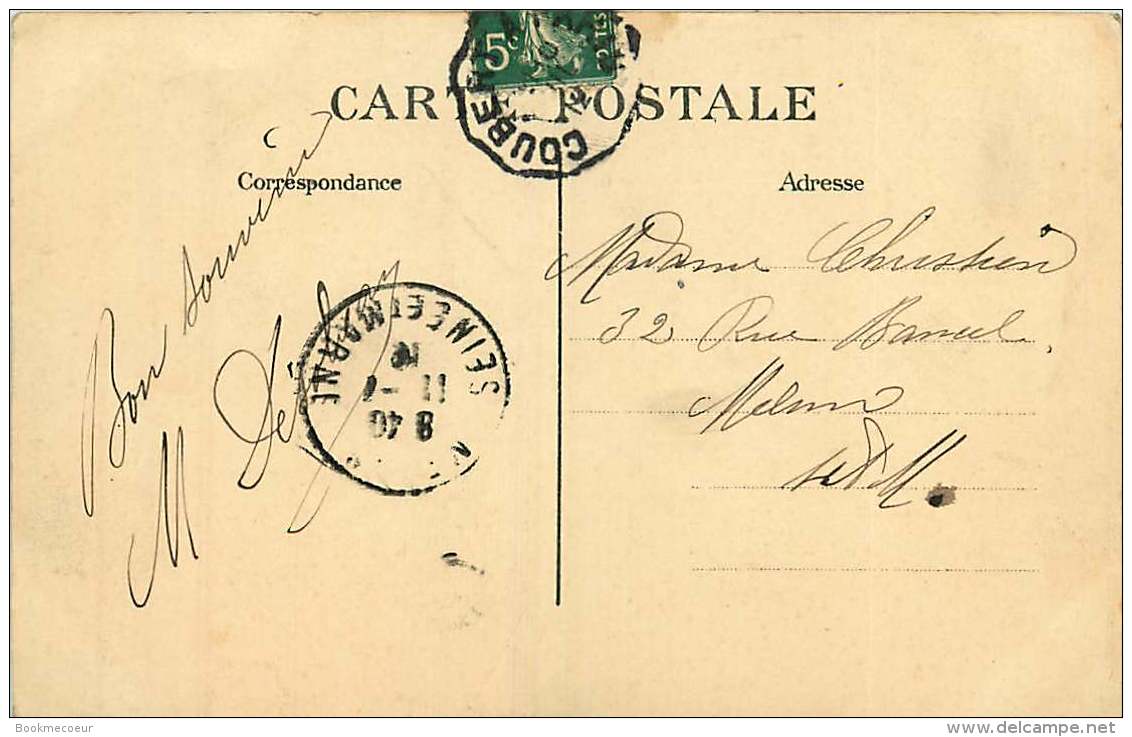 5c
POSTES
COUBERT
CARTE POSTALE
Correspondance
Adresse
Bon souvenir
M
Madame Christien
32 Rue Bancel
Melun
S et M.
SEINE ET MARNE
8 40
11 -
10
Bookmecoeur
www.delcampe.net